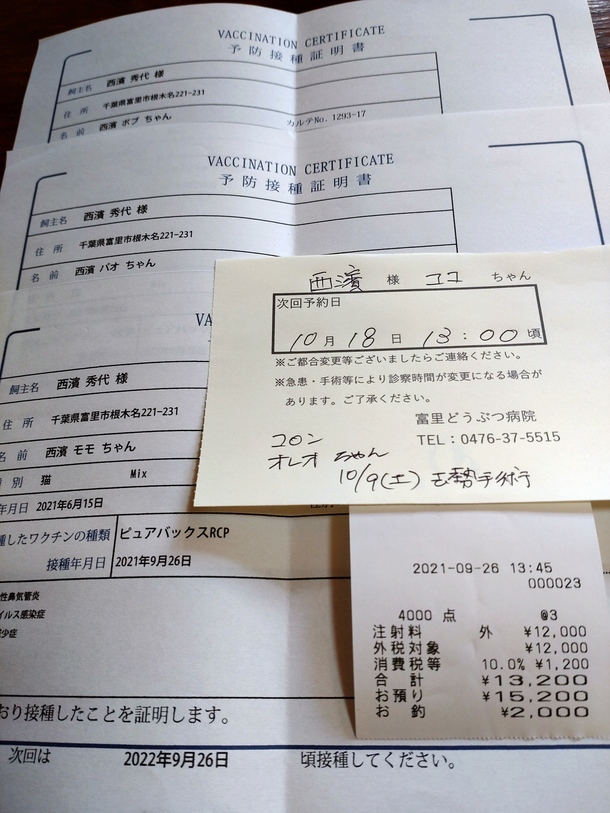 VACCINATION CERTIFICATE
予防接種証明書
飼主名 西濱 秀代 様
住所 千葉県富里市根木名221-231
名前 西濱 ボブ ちゃん
カルテNo. 1293-17
VACCINATION CERTIFICATE
予防接種証明書
飼主名 西濱 秀代 様
住所 千葉県富里市根木名221-231
名前 西濱 バオ ちゃん
VA
飼主名 西濱 秀代 様
住所 千葉県富里市根木名221-231
名前 西濱 モモ ちゃん
別 猫 Mix
年月日 2021年6月15日
種したワクチンの種類 ピュアバックスRCP
接種年月日 2021年9月26日
性鼻気管炎
イルス感染症
少症
おり接種したことを証明します。
次回は 2022年9月26日 頃接種してください。
西濱 様 ココ ちゃん
次回予約日
10月18日 13:00頃
※ご都合変更等ございましたらご連絡ください。
※急患・手術等により診察時間が変更になる場合が
あります。ご了承ください。
富里どうぶつ病院
TEL:0476-37-5515
コロン
オレオ ちゃん
10/9(土) 去勢手術
2021-09-26 13:45
000023
4000 点 @3
注射料 外 ¥12,000
外税対象 ¥12,000
消費税等 10.0% ¥1,200
合計 ¥13,200
お預り ¥15,200
お釣 ¥2,000